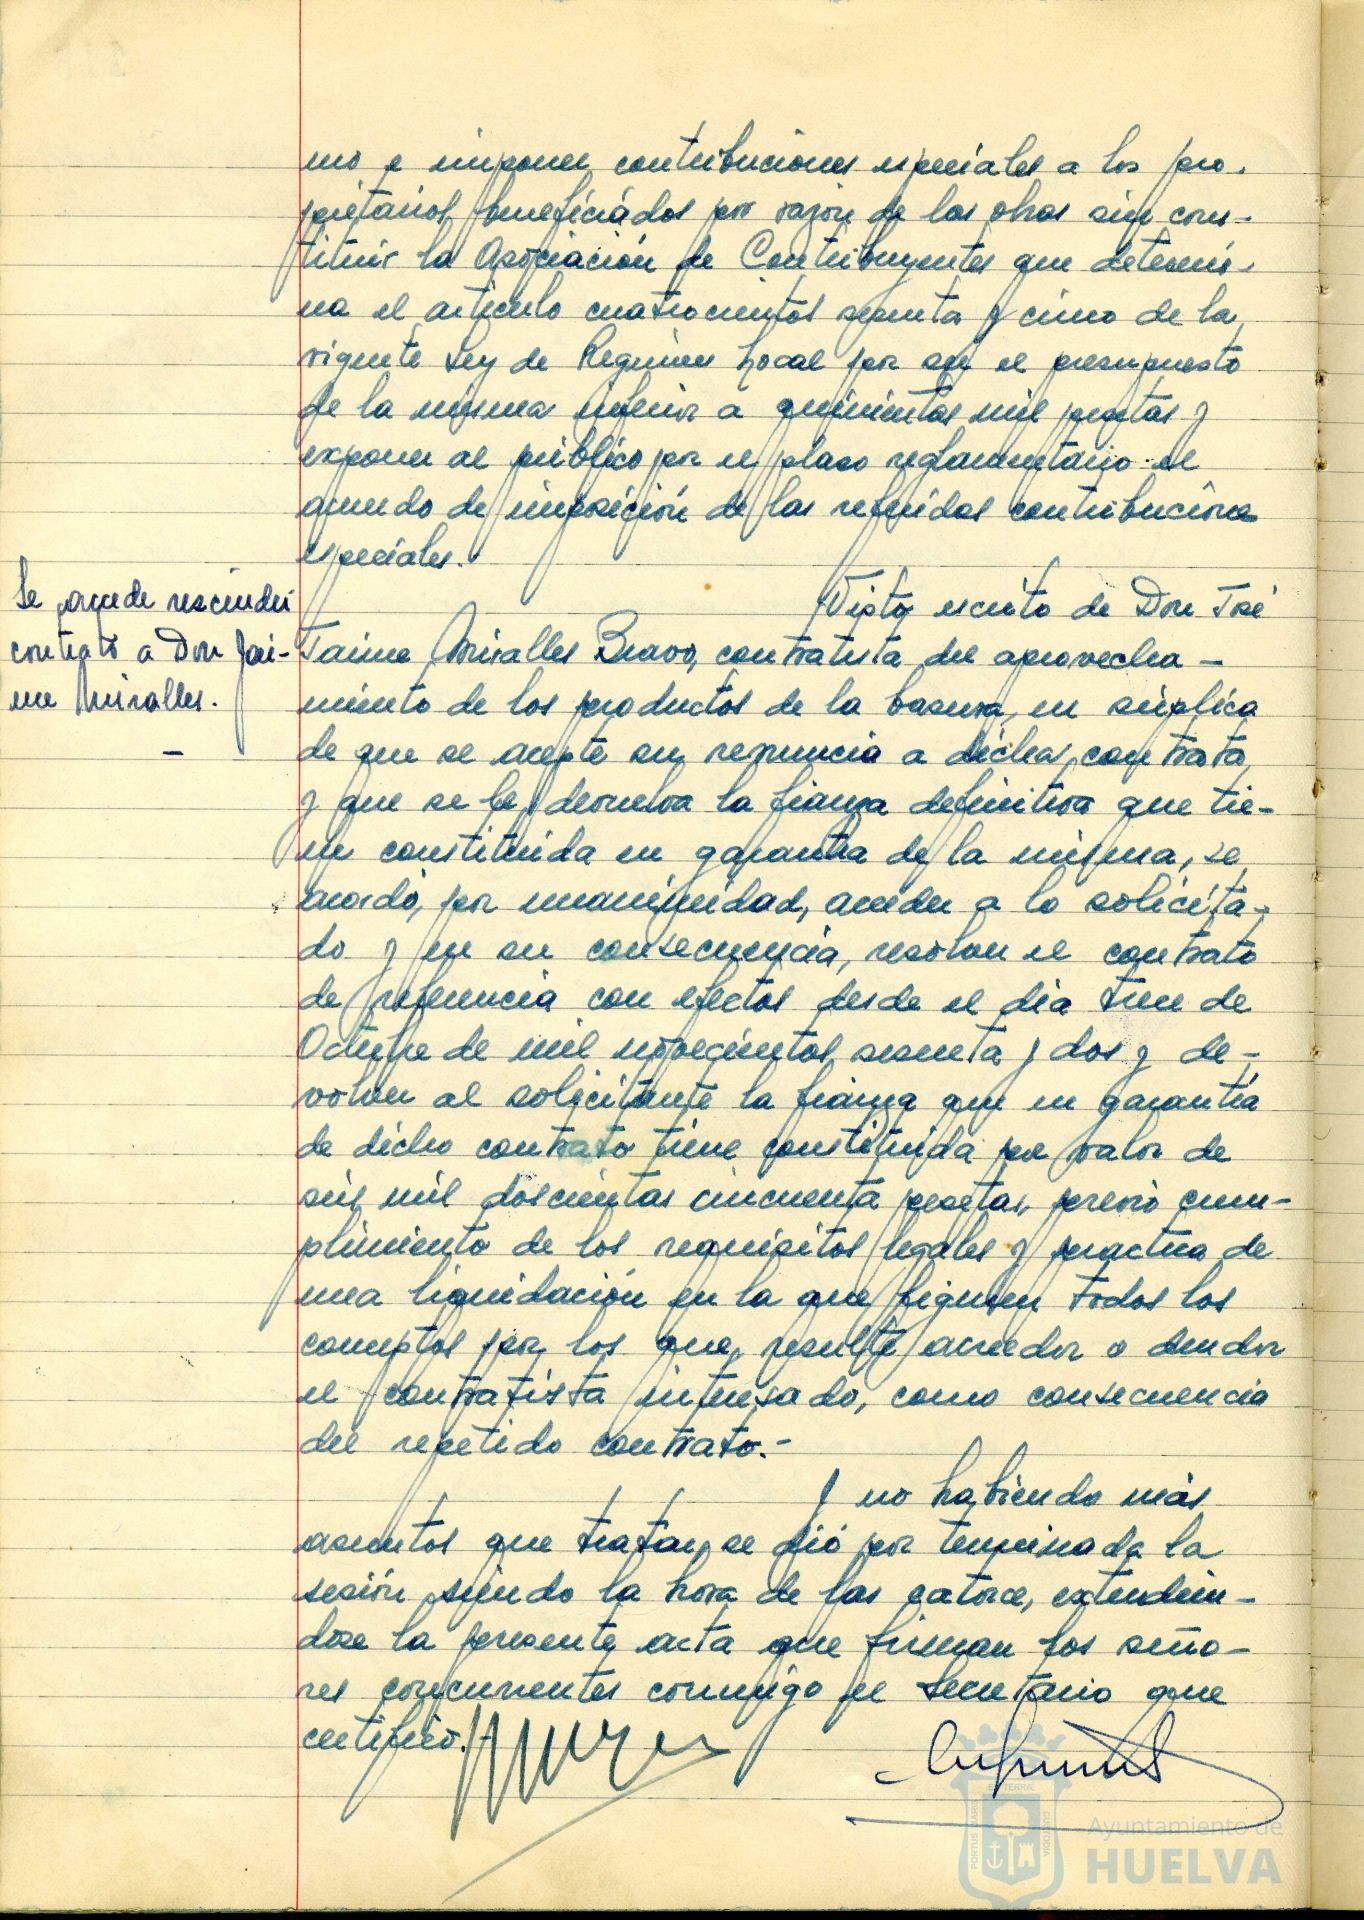 mo e imponer contribuciones especiales a los pro-
pietarios beneficiados por razón de las obras sin cons-
tituir la Asociación de Contribuyentes que determi-
na el artículo cuatrocientos sesenta y cinco de la
vigente Ley de Regimen Local por ser el presupuesto
de la misma inferior a quinientas mil pesetas y
exponer al público por el plazo reglamentario el
acuerdo de imposición de las referidas contribuciones
especiales.
Visto escrito de Don José
Se acuerda rescindir
contrato a Don Jai-
me Miralles.
Jaime Miralles Bravo, contratista del aprovecha-
miento de los productos de la basura, en súplica
de que se acepte su renuncia a dicha contrata,
y que se le devuelva la fianza definitiva que tie-
ne constituida en garantía de la misma, se
acordó, por unanimidad, acceder a lo solicita-
do y en su consecuencia, resolver el contrato
de referencia con efectos desde el dia trece de
Octubre de mil novecientos sesenta y dos y de-
volver al solicitante la fianza que en garantía
de dicho contrato tiene constituida por valor de
seis mil doscientas cincuenta pesetas, previo cum-
plimiento de los requisitos legales y practica de
una liquidación en la que figuren todos los
conceptos por los que resulte acreedor o deudor
el contratista interesado, como consecuencia
del repetido contrato.-
Y no habiendo más
asuntos que tratar, se dió por terminada la
sesión siendo la hora de las catorce, extendién-
dose la presente acta que firman los seño-
res concurrentes conmigo el Secretario que
certifico.
PORTUS MARIS ET TERRAE CUSTODIA
Ayuntamiento de
HUELVA